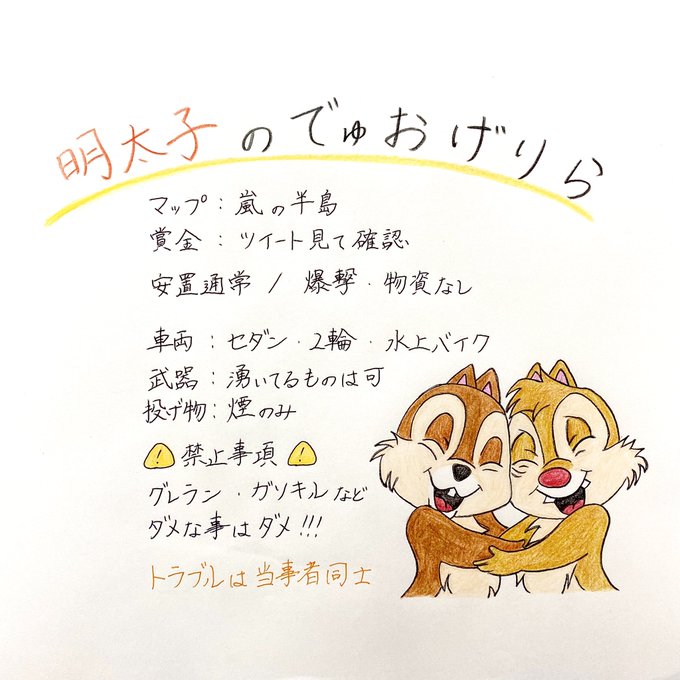 明太子のでゅおげりら
マップ：嵐の半島
賞金：ツイート見て確認
安置通常 / 爆撃・物資なし
車両：セダン・2輪・水上バイク
武器：湧いてるものは可
投げ物：煙のみ
⚠禁止事項⚠
グレラン・ガソキルなど
ダメな事はダメ!!!
トラブルは当事者同士